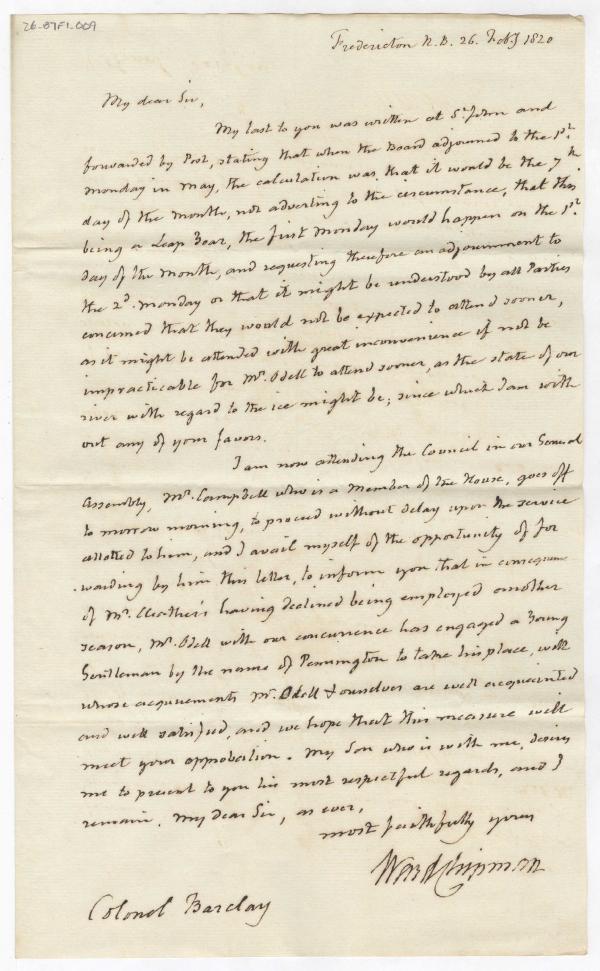 26-87F1-009
Fredericton N.B. 26. Feby 1820
My dear Sir,
My last to you was written at St. John and
forwarded by Post, stating that when the Board adjourned to the 1st.
Monday in May, the calculation was, that it would be the 7th.
day of the Month, not adverting to the circumstance, that this
being a Leap Year, the first Monday would happen on the 1st.
day of the Month, and requesting therefore an adjournment to
the 2d. Monday or that it might be understood by all Parties
concerned that they would not be expected to attend sooner,
as it might be attended with great inconvenience if not be
impracticable for Mr. Odell to attend sooner, as the state of our
river with regard to the ice might be; since which I am with
out any of your favors.
I am now attending the Council in our General
Assembly, Mr. Campbell who is a Member of the House, goes off
to morrow morning, to proceed without delay upon the service
allotted to him, and I avail myself of the opportunity of for
warding by him this letter, to inform you that in consequence
of Mr. having declined being employed another
season, Mr. Odell with our concurrence has engaged a Young
Gentleman by the name of Pennington to take his place, with
whose acquirements Mr. Odell & ourselves are well acquainted
and well satisfied, and we hope that this measure will
meet your approbation. My Son who is with me, desires
me to present to you his most respectful regards, and I
remain, My dear Sir, as ever,
most faithfully yours
Ward Chipman
Colonel Barclay